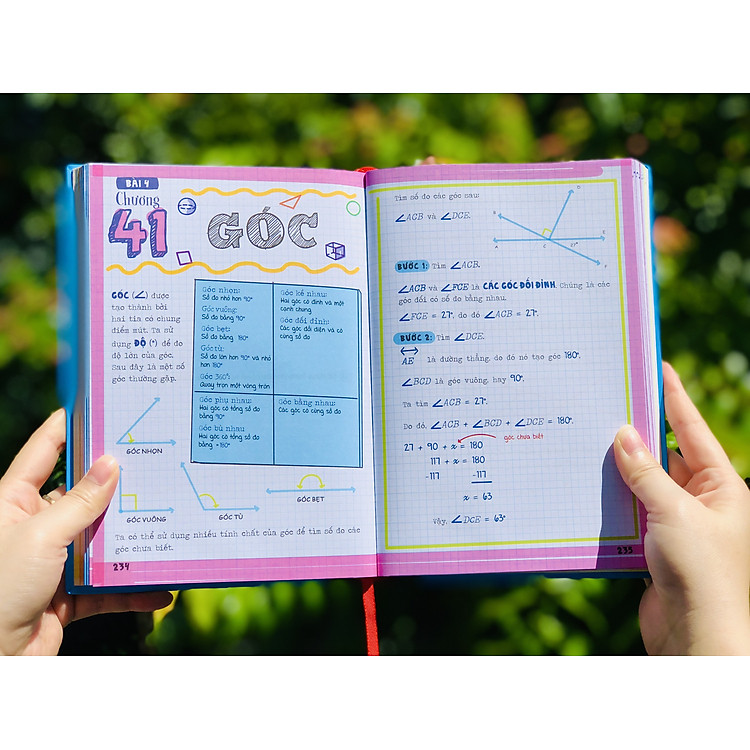 BÀI 4
Chương
41
GÓC
GÓC (∠) được
tạo thành bởi
hai tia có chung
điểm mút. Ta sử
dụng ĐỘ (°) để đo
độ lớn của góc.
Sau đây là một số
góc thường gặp.
Góc nhọn:
Số đo nhỏ hơn 90°
Góc vuông:
Số đo bằng 90°
Góc bẹt:
Số đo bằng 180°
Góc tù:
Số đo lớn hơn 90° và nhỏ
hơn 180°
Góc 360°:
Quay tròn một vòng tròn
Góc kề nhau:
Hai góc có đỉnh và một
cạnh chung
Góc đối đỉnh:
Các góc đối diện và có
cùng số đo
Góc phụ nhau:
Hai góc có tổng số đo
bằng 90°
Góc bù nhau
Hai góc có tổng số đo
bằng = 180°
Góc bằng nhau:
Các góc có cùng số đo
GÓC NHỌN
GÓC VUÔNG
GÓC TÙ
GÓC BẸT
Ta có thể sử dụng nhiều tính chất của góc để tìm số đo các
góc chưa biết.
234
Tìm số đo các góc sau:
∠ACB và ∠DCE.
A
C
E
F
27°
BƯỚC 1: Tìm ∠ACB.
∠ACB và ∠FCE là CÁC GÓC ĐỐI ĐỈNH. Chúng là các
góc đối có số đo bằng nhau.
∠FCE = 27°, do đó ∠ACB = 27°.
BƯỚC 2: Tìm ∠DCE.
AE là đường thẳng, do đó nó tạo góc 180°.
∠BCD là góc vuông, hay 90°.
Ta tìm ∠ACB = 27°.
Do đó, ∠ACB + ∠BCD + ∠DCE = 180°.
góc chưa biết
27 + 90 + x = 180
117 + x = 180
-117 -117
x = 63
Vậy, ∠DCE = 63°
235